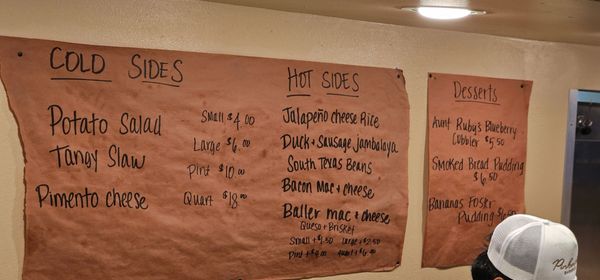 COLD SIDES
Potato Salad
Tangy Slaw
Pimento cheese
Small $4.00
Large $6.00
Pint $10.00
Quart $18.00
HOT SIDES
Jalapeño cheese Rice
Duck + Sausage jambalaya
South Texas Beans
Bacon Mac + cheese
Baller mac + cheese
Queso + Brisket
Small +$1.50 Large +$2.50
Pint + Quart +
Desserts
Aunt Ruby's Blueberry
Cobbler $5.50
Smoked Bread Pudding
$6.50
Bananas Foster
Pudding